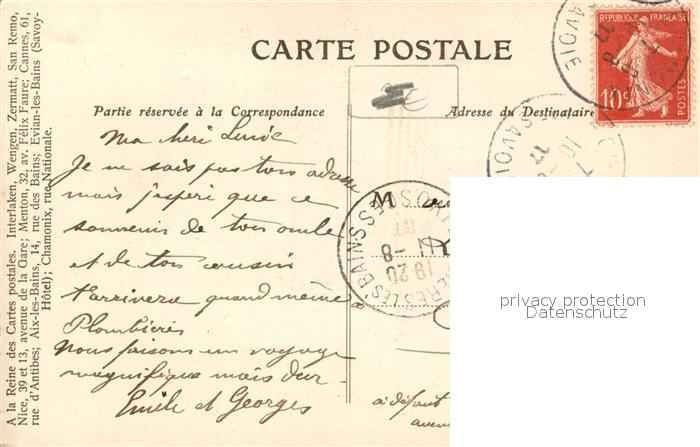 CARTE POSTALE
Partie réservée à la Correspondance
Adresse du Destinataire
REPUBLIQUE FRANÇAISE
10c
POSTES
SAVOIE
SAVOIE
17
A la Reine des Cartes postales. Interlaken, Wengen, Zermatt, San Remo,
Nice, 39 et 13, avenue de la Gare; Menton, 32, av. Félix Faure; Cannes, 61,
rue d'Antibes; Aix-les-Bains, 14, rue des Bains; Evian-les-Bains (Savoy-
Hôtel); Chamonix, rue Nationale.
Ma
Je ne sais pas ton adresse
mais j'esperi que ce
souvenir de ton oncle
et de ton cousin
t'arrivera quand même à
Plombières
Nous faisons un voyage
magnifique mais dur
Emile et Georges
M
LES BAINS
VOSGES
18 20
8
à défaut
privacy protection
Datenschutz